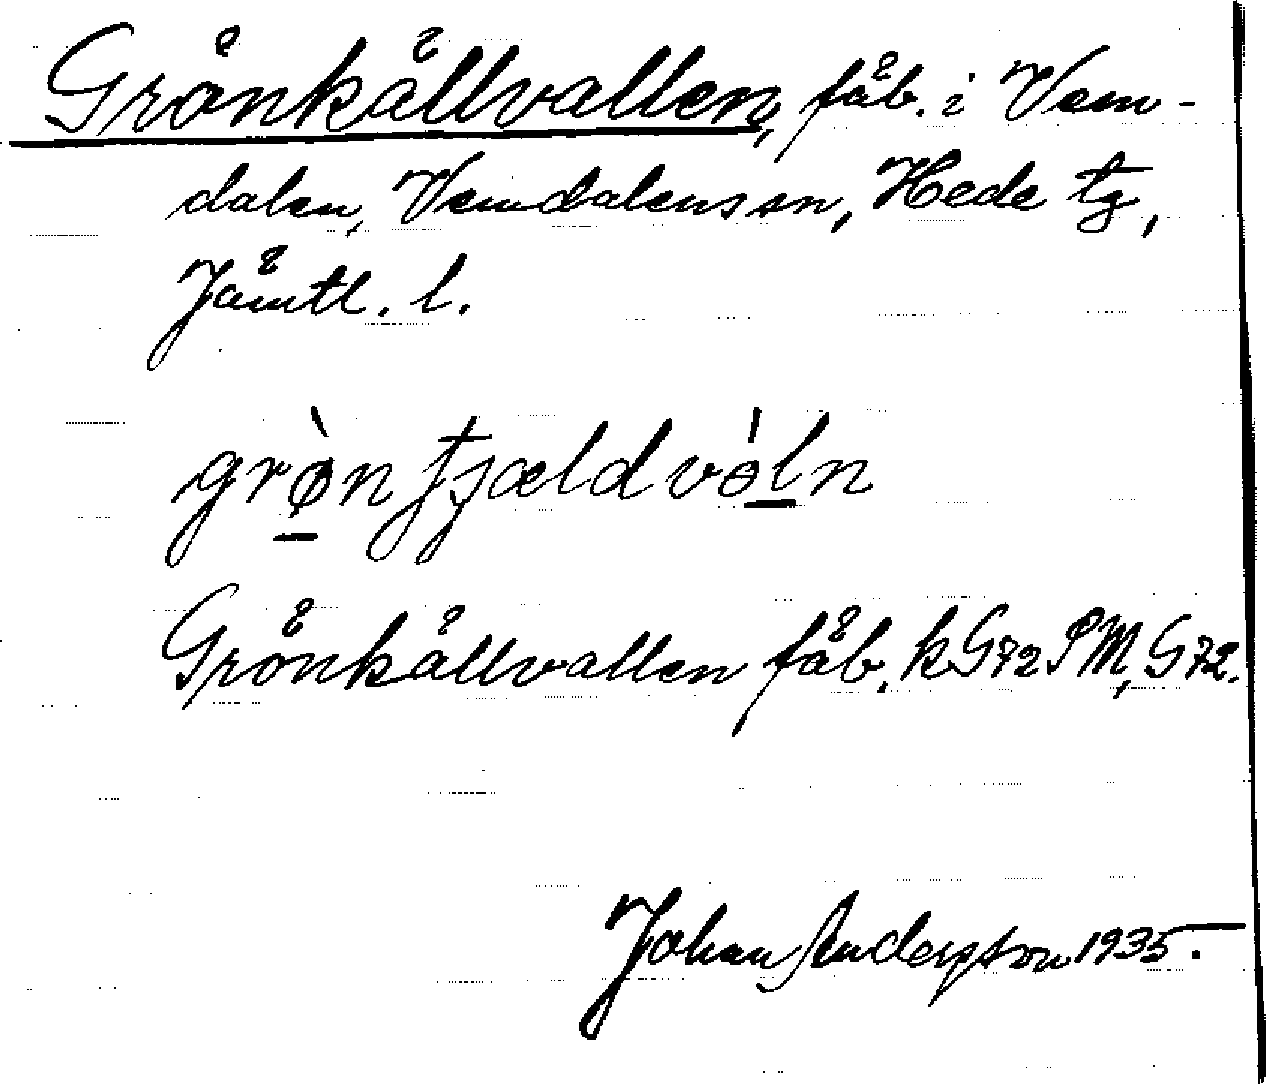 Grönkällvallen, fäb. i Vem-
dalen, Vemdalens sn, Hede tg,
Jämtl. l.
grø̀n tjældvòln
Grönkällvallen fäb. k G72 PM, G72.
Johan Anderson 1935.